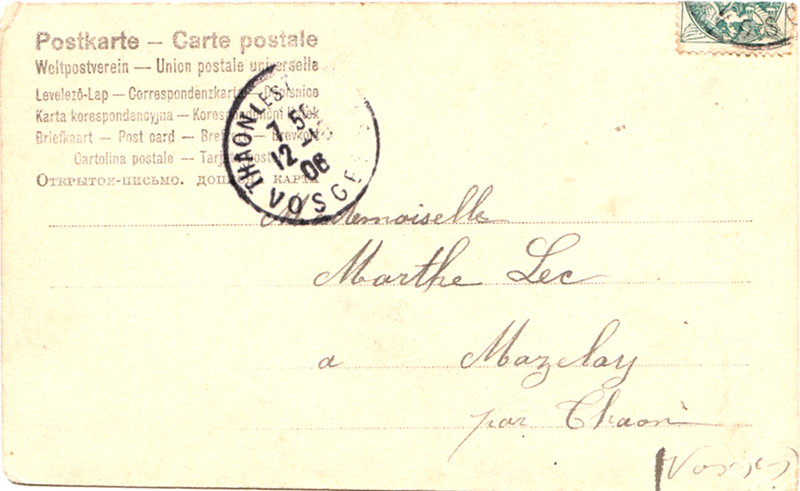 Postkarte – Carte postale
Weltpostverein — Union postale universelle
Levelező-Lap – Correspondenzkarte
Karta korespondencyjna – Korespondenční lístek
Briefkaart – Post card – Brefkort – Brevkort
Cartolina postale – Tarjeta postal
Открытое-письмо.
THAON LES VOSGES
7 5
12 -1
06
Mademoiselle
Marthe Lec
a Mazelay
par Thaon
(Vosges)